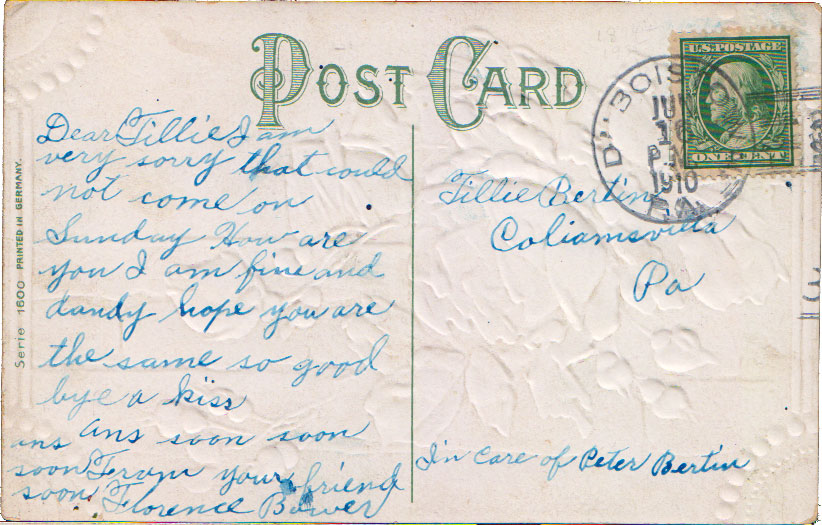 POST CARD
Dear Tillie I am
very sorry that could
not come on
Sunday How are
you I am fine and
dandy hope you are
the same so good
bye a kiss
ans ans soon soon
soon From your friend
soon Florence Bower
Serie 1600 PRINTED IN GERMANY.
U.S. POSTAGE
ONE CENT
DU BOIS
16
1910
PA.
Tillie Bertin
Coliamsvilla
Pa
In care of Peter Bertin